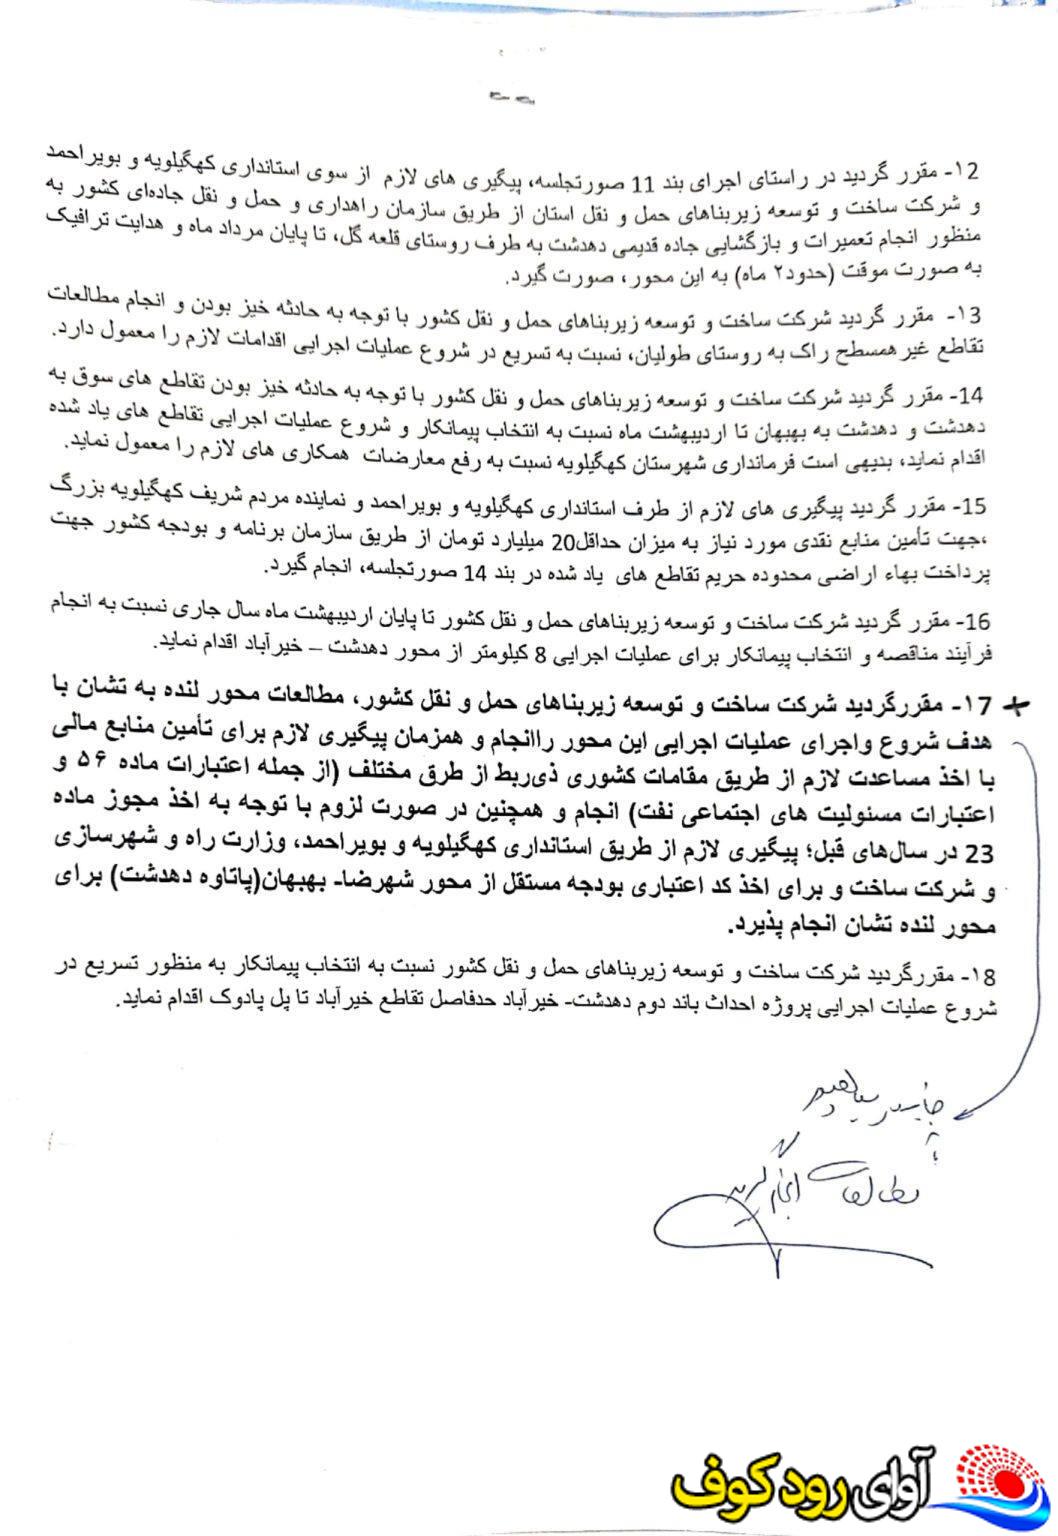 ۱2- مقرر گردید در راستای اجرای بند 11 صورتجلسه، پیگیری های لازم از سوی استانداری کهگیلویه و بویراحمد
و شرکت ساخت و توسعه زیربناهای حمل و نقل استان از طریق سازمان راهداری و حمل و نقل جاده‌ای کشور به
منظور انجام تعمیرات و بازگشایی جاده قدیمی دهدشت به طرف روستای قلعه گل، تا پایان مرداد ماه و هدایت ترافیک
به صورت موقت (حدود۲ ماه) به این محور، صورت گیرد.
۱3- مقرر گردید شرکت ساخت و توسعه زیربناهای حمل و نقل کشور با توجه به حادثه خیز بودن و انجام مطالعات
تقاطع غیرهمسطح راک به روستای طولیان، نسبت به تسریع در شروع عملیات اجرایی اقدامات لازم را معمول دارد.
14- مقرر گردید شرکت ساخت و توسعه زیربناهای حمل و نقل کشور با توجه به حادثه خیز بودن تقاطع های سوق به
دهدشت و دهدشت به بهبهان تا اردیبهشت ماه نسبت به انتخاب پیمانکار و شروع عملیات اجرایی تقاطع های یاد شده
اقدام نماید، بدیهی است فرمانداری شهرستان کهگیلویه نسبت به رفع معارضات همکاری های لازم را معمول نماید.
15- مقرر گردید پیگیری های لازم از طرف استانداری کهگیلویه و بویراحمد و نماینده مردم شریف کهگیلویه بزرگ
،جهت تأمین منابع نقدی مورد نیاز به میزان حداقل20 میلیارد تومان از طریق سازمان برنامه و بودجه کشور جهت
پرداخت بهاء اراضی محدوده حریم تقاطع های یاد شده در بند 14 صورتجلسه، انجام گیرد.
16- مقرر گردید شرکت ساخت و توسعه زیربناهای حمل و نقل کشور تا پایان اردیبهشت ماه سال جاری نسبت به انجام
فرآیند مناقصه و انتخاب پیمانکار برای عملیات اجرایی 8 کیلومتر از محور دهدشت – خیرآباد اقدام نماید.
۱7- مقررگردید شرکت ساخت و توسعه زیربناهای حمل و نقل کشور، مطالعات محور لنده به تشان با
هدف شروع واجرای عملیات اجرایی این محور راانجام و همزمان پیگیری لازم برای تأمین منابع مالی
با اخذ مساعدت لازم از طریق مقامات کشوری ذی‌ربط از طرق مختلف (از جمله اعتبارات ماده ۵۶ و
اعتبارات مسئولیت های اجتماعی نفت) انجام و همچنین در صورت لزوم با توجه به اخذ مجوز ماده
23 در سال‌های قبل؛ پیگیری لازم از طریق استانداری کهگیلویه و بویراحمد، وزارت راه و شهرسازی
و شرکت ساخت و برای اخذ کد اعتباری بودجه مستقل از محور شهرضا- بهبهان(پاتاوه دهدشت) برای
محور لنده تشان انجام پذیرد.
۱8- مقررگردید شرکت ساخت و توسعه زیربناهای حمل و نقل کشور نسبت به انتخاب پیمانکار به منظور تسریع در
شروع عملیات اجرایی پروژه احداث باند دوم دهدشت- خیرآباد حدفاصل تقاطع خیرآباد تا پل پادوک اقدام نماید.
مطالعات انجام
آوای رود کوف